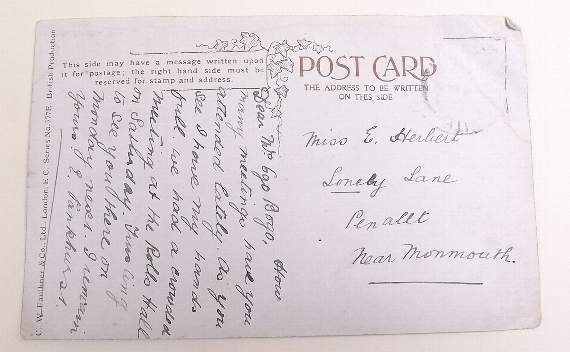 This side may have a message written upon
it for postage; the right hand side must be
reserved for stamp and address.
POST CARD
THE ADDRESS TO BE WRITTEN
ON THIS SIDE
C. W. Faulkner & Co., Ltd., London, E.C. Series No. 377E. British Production
Dear Mrs Bogo, How
many meetings have you
attended lately. As you
see I have my hands
full we had a crowded
meeting at the Rolls Hall
on Saturday. Trusting
to see you there on
Monday next. I remain
Yours E. Pankhurst.
Miss E. Herbert
Lonely Lane
Penallt
Near Monmouth.